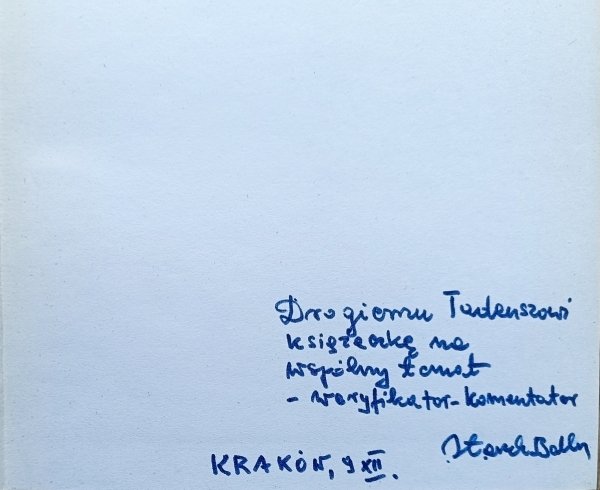 Drogiemu Tadeuszowi
książeczkę na
wspólny temat
- weryfikator-komentator
KRAKÓW, 9 XII.